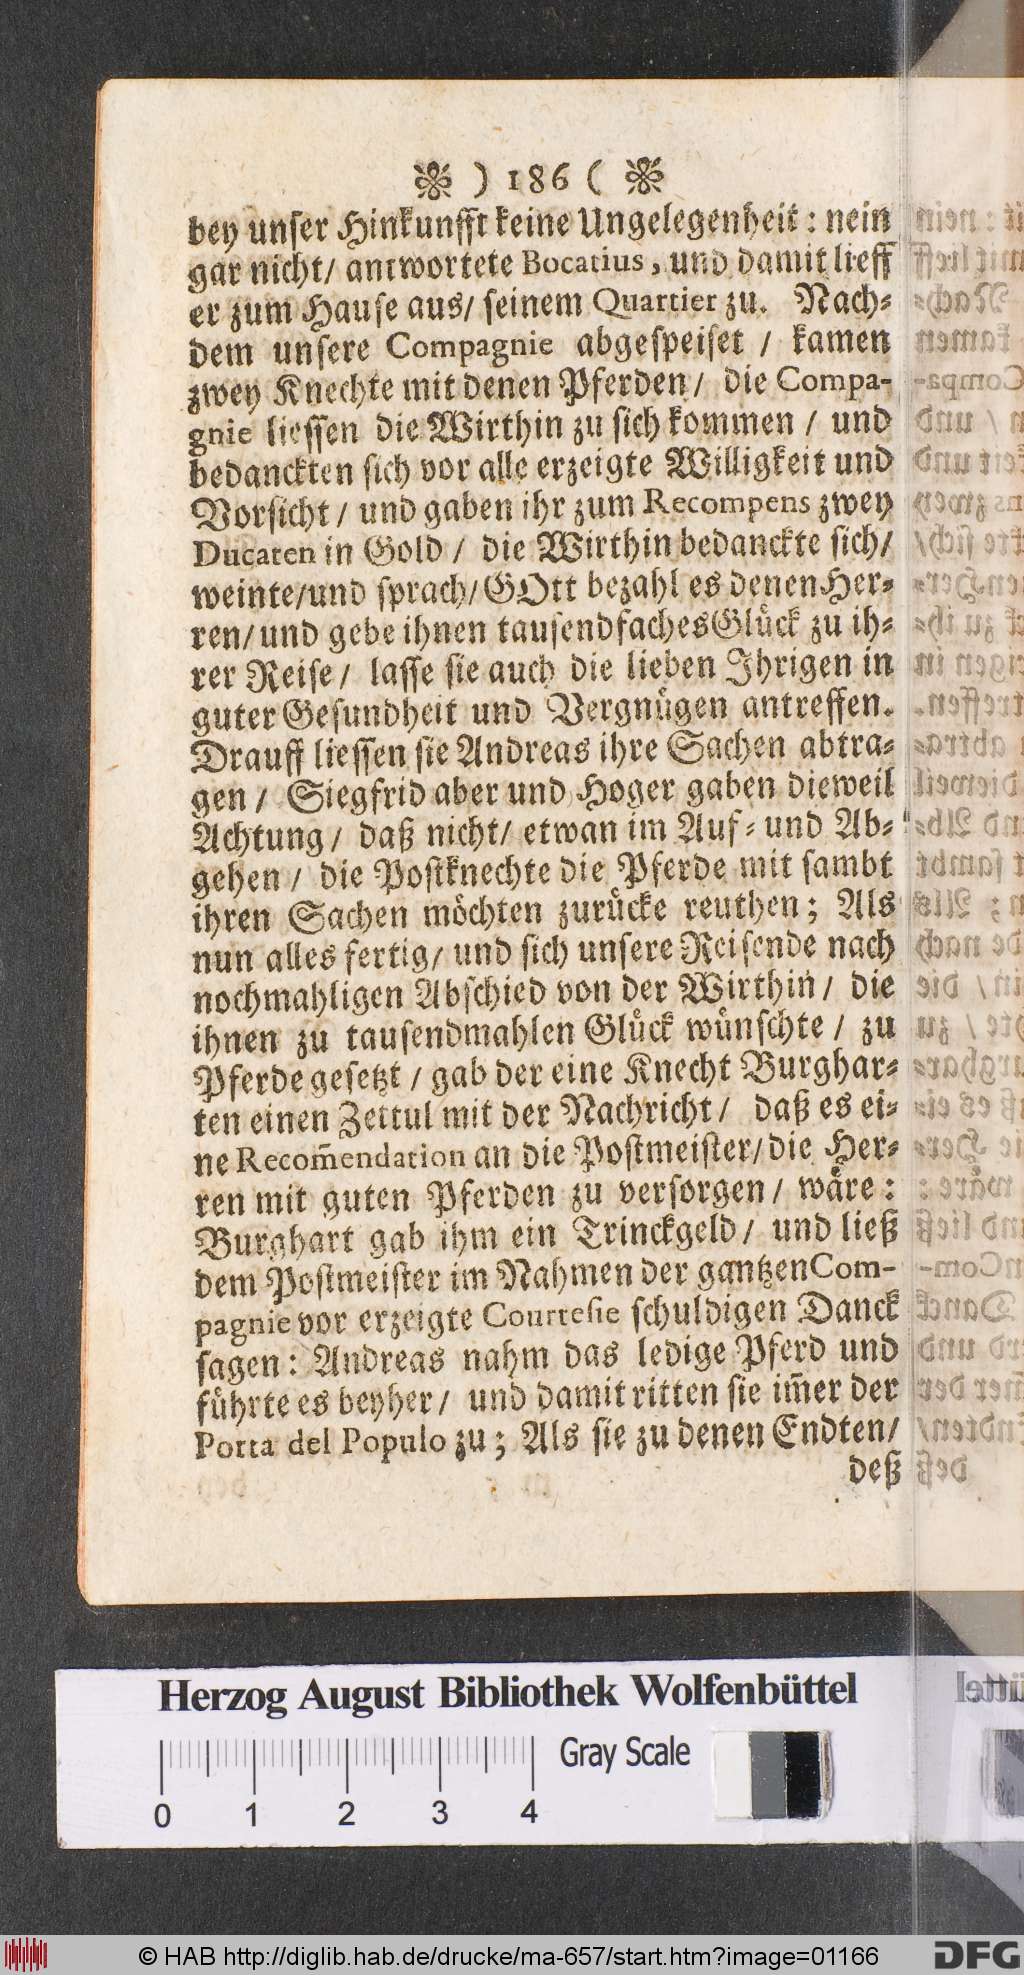 ❀ ) 186 ( ❀
bey unser Hinkunfft keine Ungelegenheit : nein
gar nicht/ antwortete Bocatius, und damit lieff
er zum Hause aus/ seinem Quartier zu. Nach-
dem unsere Compagnie abgespeiset / kamen
zwey Knechte mit denen Pferden/ die Compa-
gnie liessen die Wirthin zu sich kommen / und
bedanckten sich vor alle erzeigte Willigkeit und
Vorsicht / und gaben ihr zum Recompens zwey
Ducaten in Gold / die Wirthin bedanckte sich/
weinte/und sprach/ GOtt bezahl es denen Her-
ren/ und gebe ihnen tausendfaches Glück zu ih-
rer Reise / lasse sie auch die lieben Ihrigen in
guter Gesundheit und Vergnügen antreffen.
Drauff liessen sie Andreas ihre Sachen abtra-
gen / Siegfrid aber und Hoger gaben dieweil
Achtung / daß nicht/ etwan im Auf- und Ab-
gehen / die Postknechte die Pferde mit sambt
ihren Sachen möchten zurücke reuthen; Als
nun alles fertig/ und sich unsere Reisende nach
nochmahligen Abschied von der Wirthin / die
ihnen zu tausendmahlen Glück wünschte / zu
Pferde gesetzt / gab der eine Knecht Burghar-
ten einen Zettul mit der Nachricht / daß es ei-
ne Recom̃endation an die Postmeister/ die Her-
ren mit guten Pferden zu versorgen / wäre :
Burghart gab ihm ein Trinckgeld / und ließ
dem Postmeister im Nahmen der gantzen Com-
pagnie vor erzeigte Courtesie schuldigen Danck
sagen : Andreas nahm das ledige Pferd und
führte es beyher / und damit ritten sie im̃er der
Porta del Populo zu ; Als sie zu denen Endten/
deß
Herzog August Bibliothek Wolfenbüttel
Gray Scale
0 1 2 3 4
© HAB http://diglib.hab.de/drucke/ma-657/start.htm?image=01166
DFG